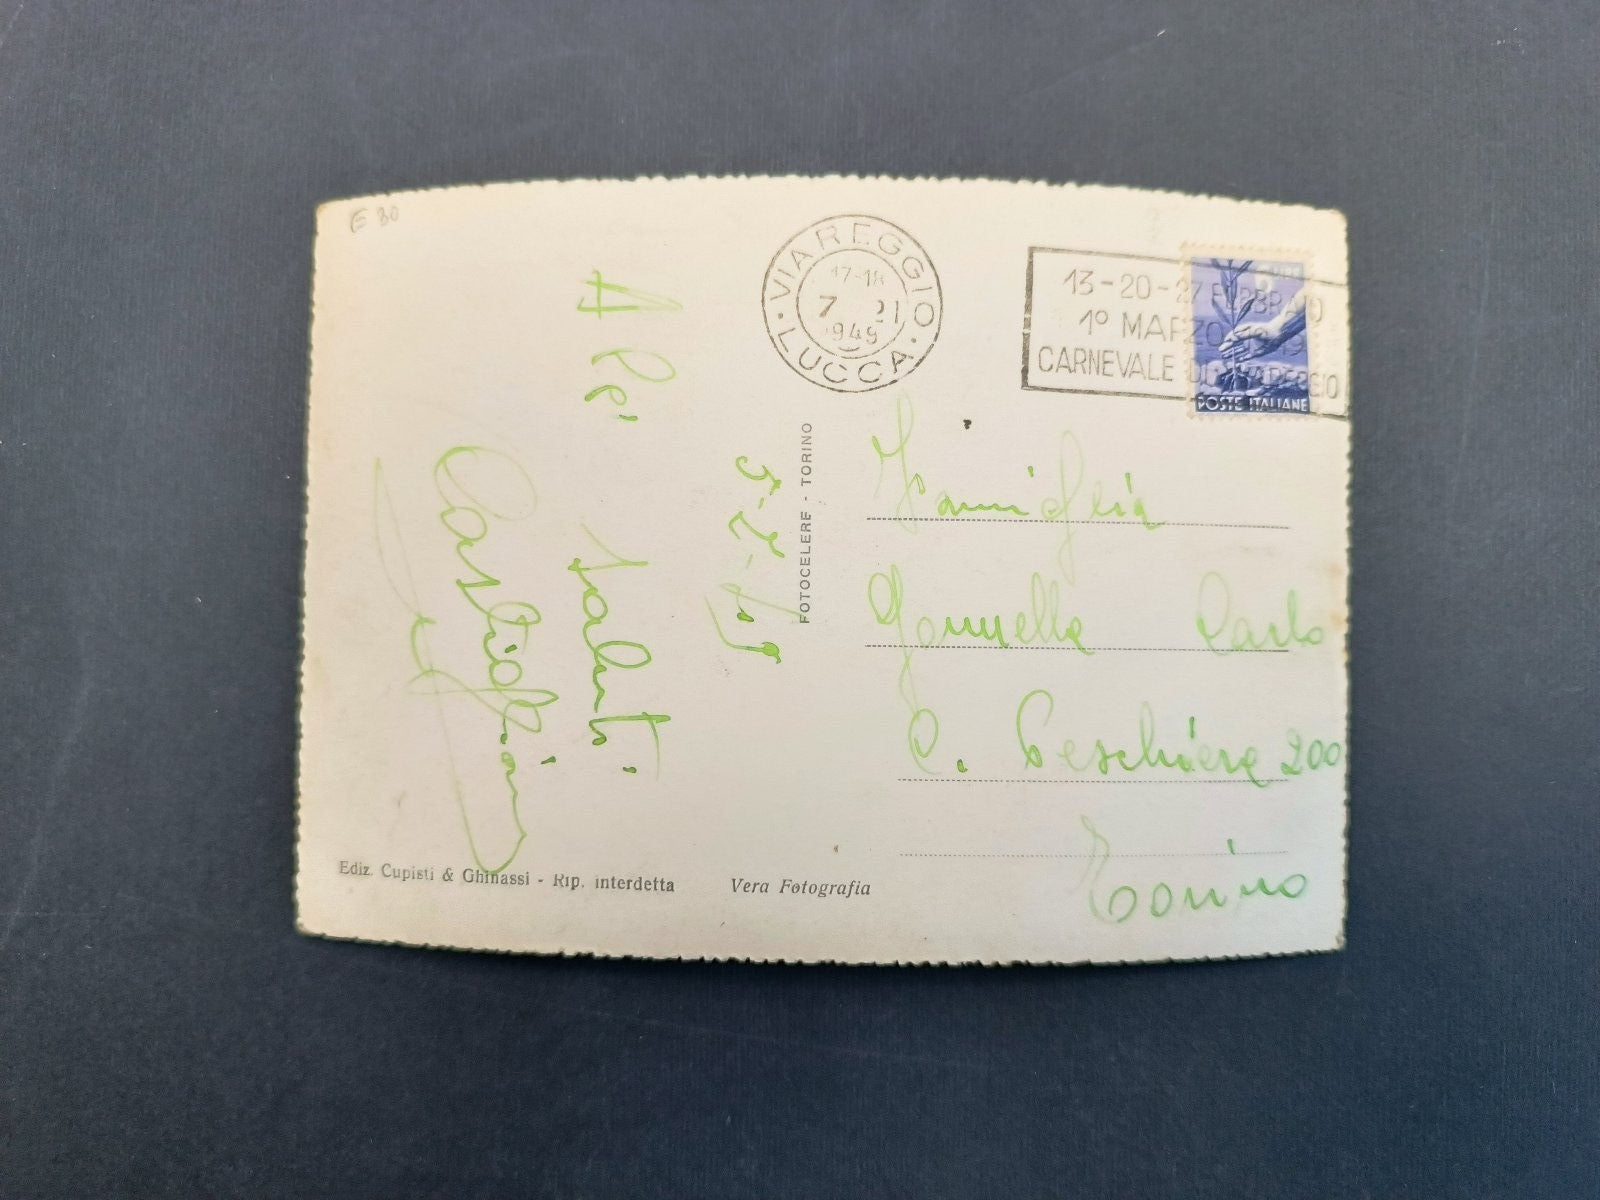 € 30
VIAREGGIO
17-18
7 21
1949
LUCCA
13-20-27 FEBBRAIO
1º MARZO 1949
CARNEVALE DI VIAREGGIO
LIRE
POSTE ITALIANE
5-2-49
Saluti
Castiglioni
FOTOCELERE - TORINO
Famiglia
Carlo
C. Peschiera 200
Torino
Ediz. Cupisti & Ghinassi - Rip. interdetta
Vera Fotografia